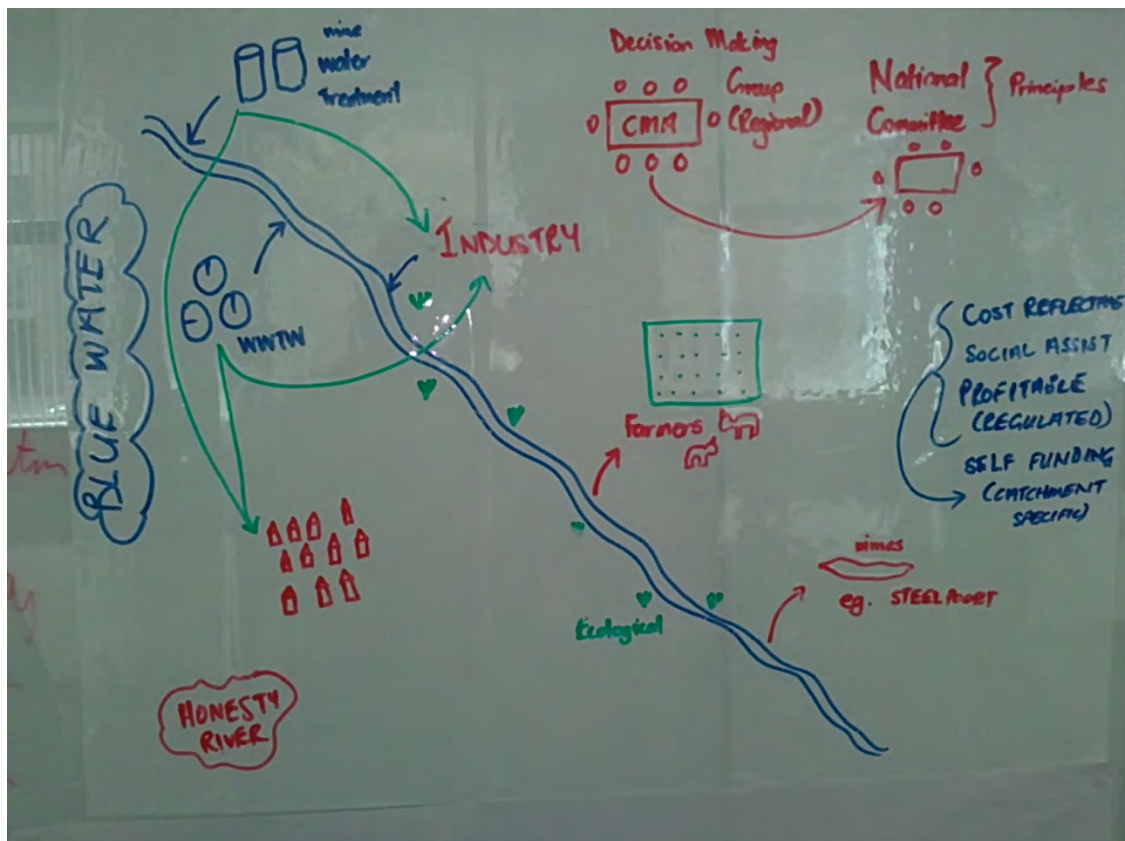 mine
water
Treatment
Decision Making
Group
(Regional)
CMA
National
Committee
Principles
BLUE WATER
INDUSTRY
WWTW
COST REFLECTIVE
SOCIAL ASSIST
PROFITABLE
(REGULATED)
SELF FUNDING
(CATCHMENT
SPECIFIC)
Farmers
mines
eg. STEEL
Ecological
HONESTY
RIVER